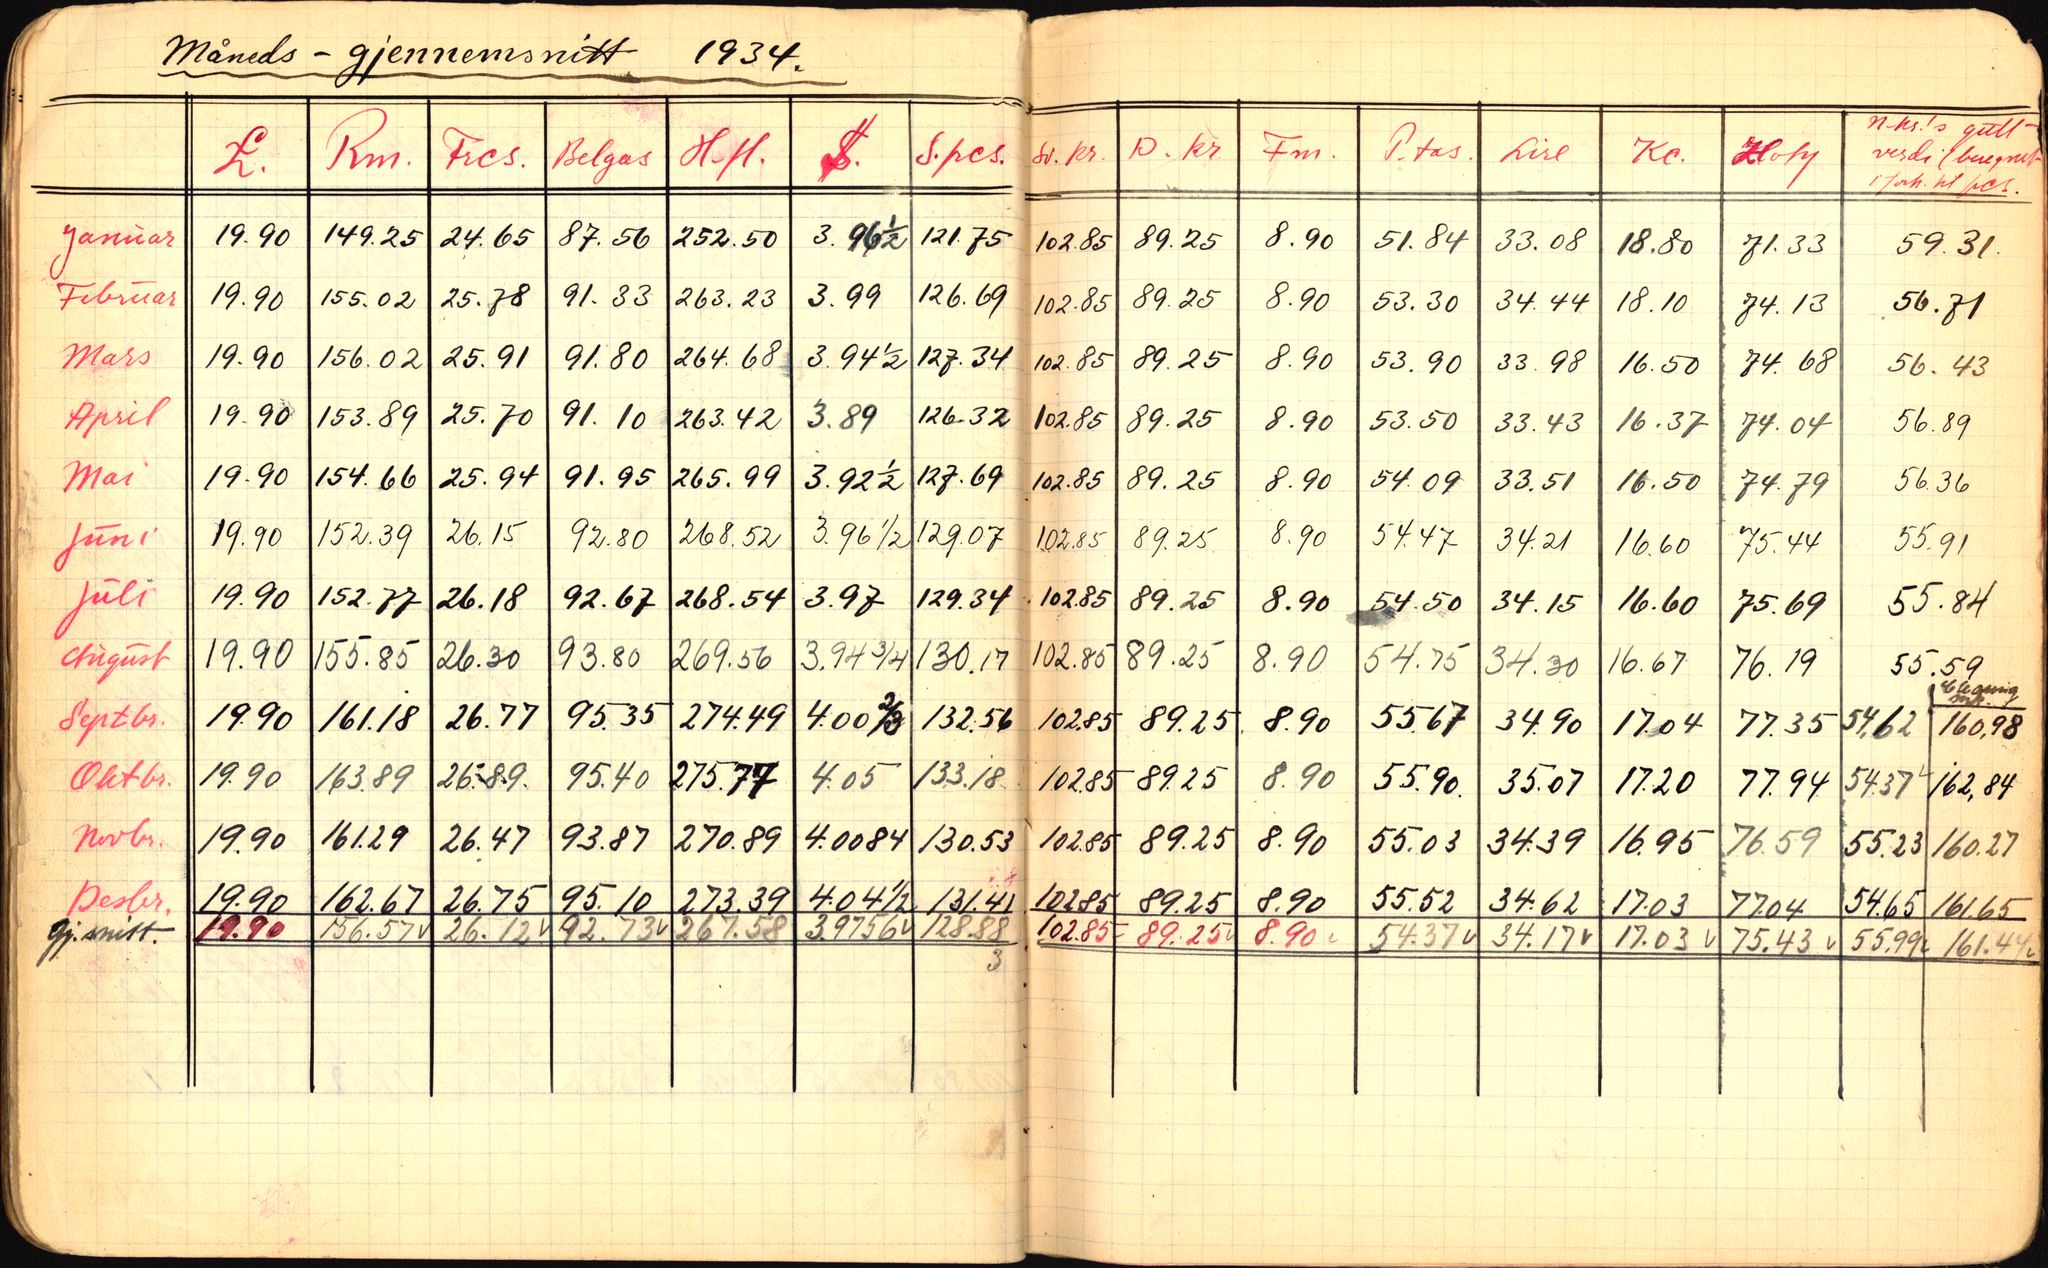 Måneds - gjennemsnitt 1934.
£. Rm. Frcs. Belgas H.fl. $. S.pcs. Sv. kr. D. kr. Fm. P.tas. Lire Kc. Zloty n.kr.'s gull-
verdi (beregnet
i forh. til pcs.
Januar 19.90 149.25 24.65 87.56 252.50 3.96½ 121.75 102.85 89.25 8.90 51.84 33.08 18.80 71.33 59.31.
Februar 19.90 155.02 25.78 91.33 263.23 3.99 126.69 102.85 89.25 8.90 53.30 34.44 18.10 74.13 56.71
Mars 19.90 156.02 25.91 91.80 264.68 3.94½ 127.34 102.85 89.25 8.90 53.90 33.98 16.50 74.68 56.43
April 19.90 153.89 25.70 91.10 263.42 3.89 126.32 102.85 89.25 8.90 53.50 33.43 16.37 74.04 56.89
Mai 19.90 154.66 25.94 91.95 265.99 3.92½ 127.69 102.85 89.25 8.90 54.09 33.51 16.50 74.79 56.36
Juni 19.90 152.39 26.15 92.80 268.52 3.96½ 129.07 102.85 89.25 8.90 54.47 34.21 16.60 75.44 55.91
Juli 19.90 152.77 26.18 92.67 268.54 3.97 129.34 102.85 89.25 8.90 54.50 34.15 16.60 75.69 55.84
August 19.90 155.85 26.30 93.80 269.56 3.94¾ 130.17 102.85 89.25 8.90 54.75 34.30 16.67 76.19 55.59
Septbr. 19.90 161.18 26.77 95.35 274.49 4.00⅔ 132.56 102.85 89.25 8.90 55.67 34.90 17.04 77.35 54.62 160,98
Oktbr. 19.90 163.89 26.89. 95.40 275.77 4.05 133.18. 102.85 89.25 8.90 55.90. 35.07 17.20 77.94 54.37 162,84
Novbr. 19.90 161.29 26.47 93.87 270.89 4.0084 130.53 102.85 89.25 8.90 55.03 34.39 16.95 76.59 55.23 160.27
Desbr. 19.90 162.67 26.75 95.10 273.39 4.04½ 131.41 102.85 89.25 8.90 55.52 34.62 17.03 77.04 54.65 161.65
Gj.snitt. 19.90 156.57 26.12 92.73 267.58 3.9756 128.88 102.85 89.25 8.90 54.37 34.17 17.03 75.43 55.99 161.44
3